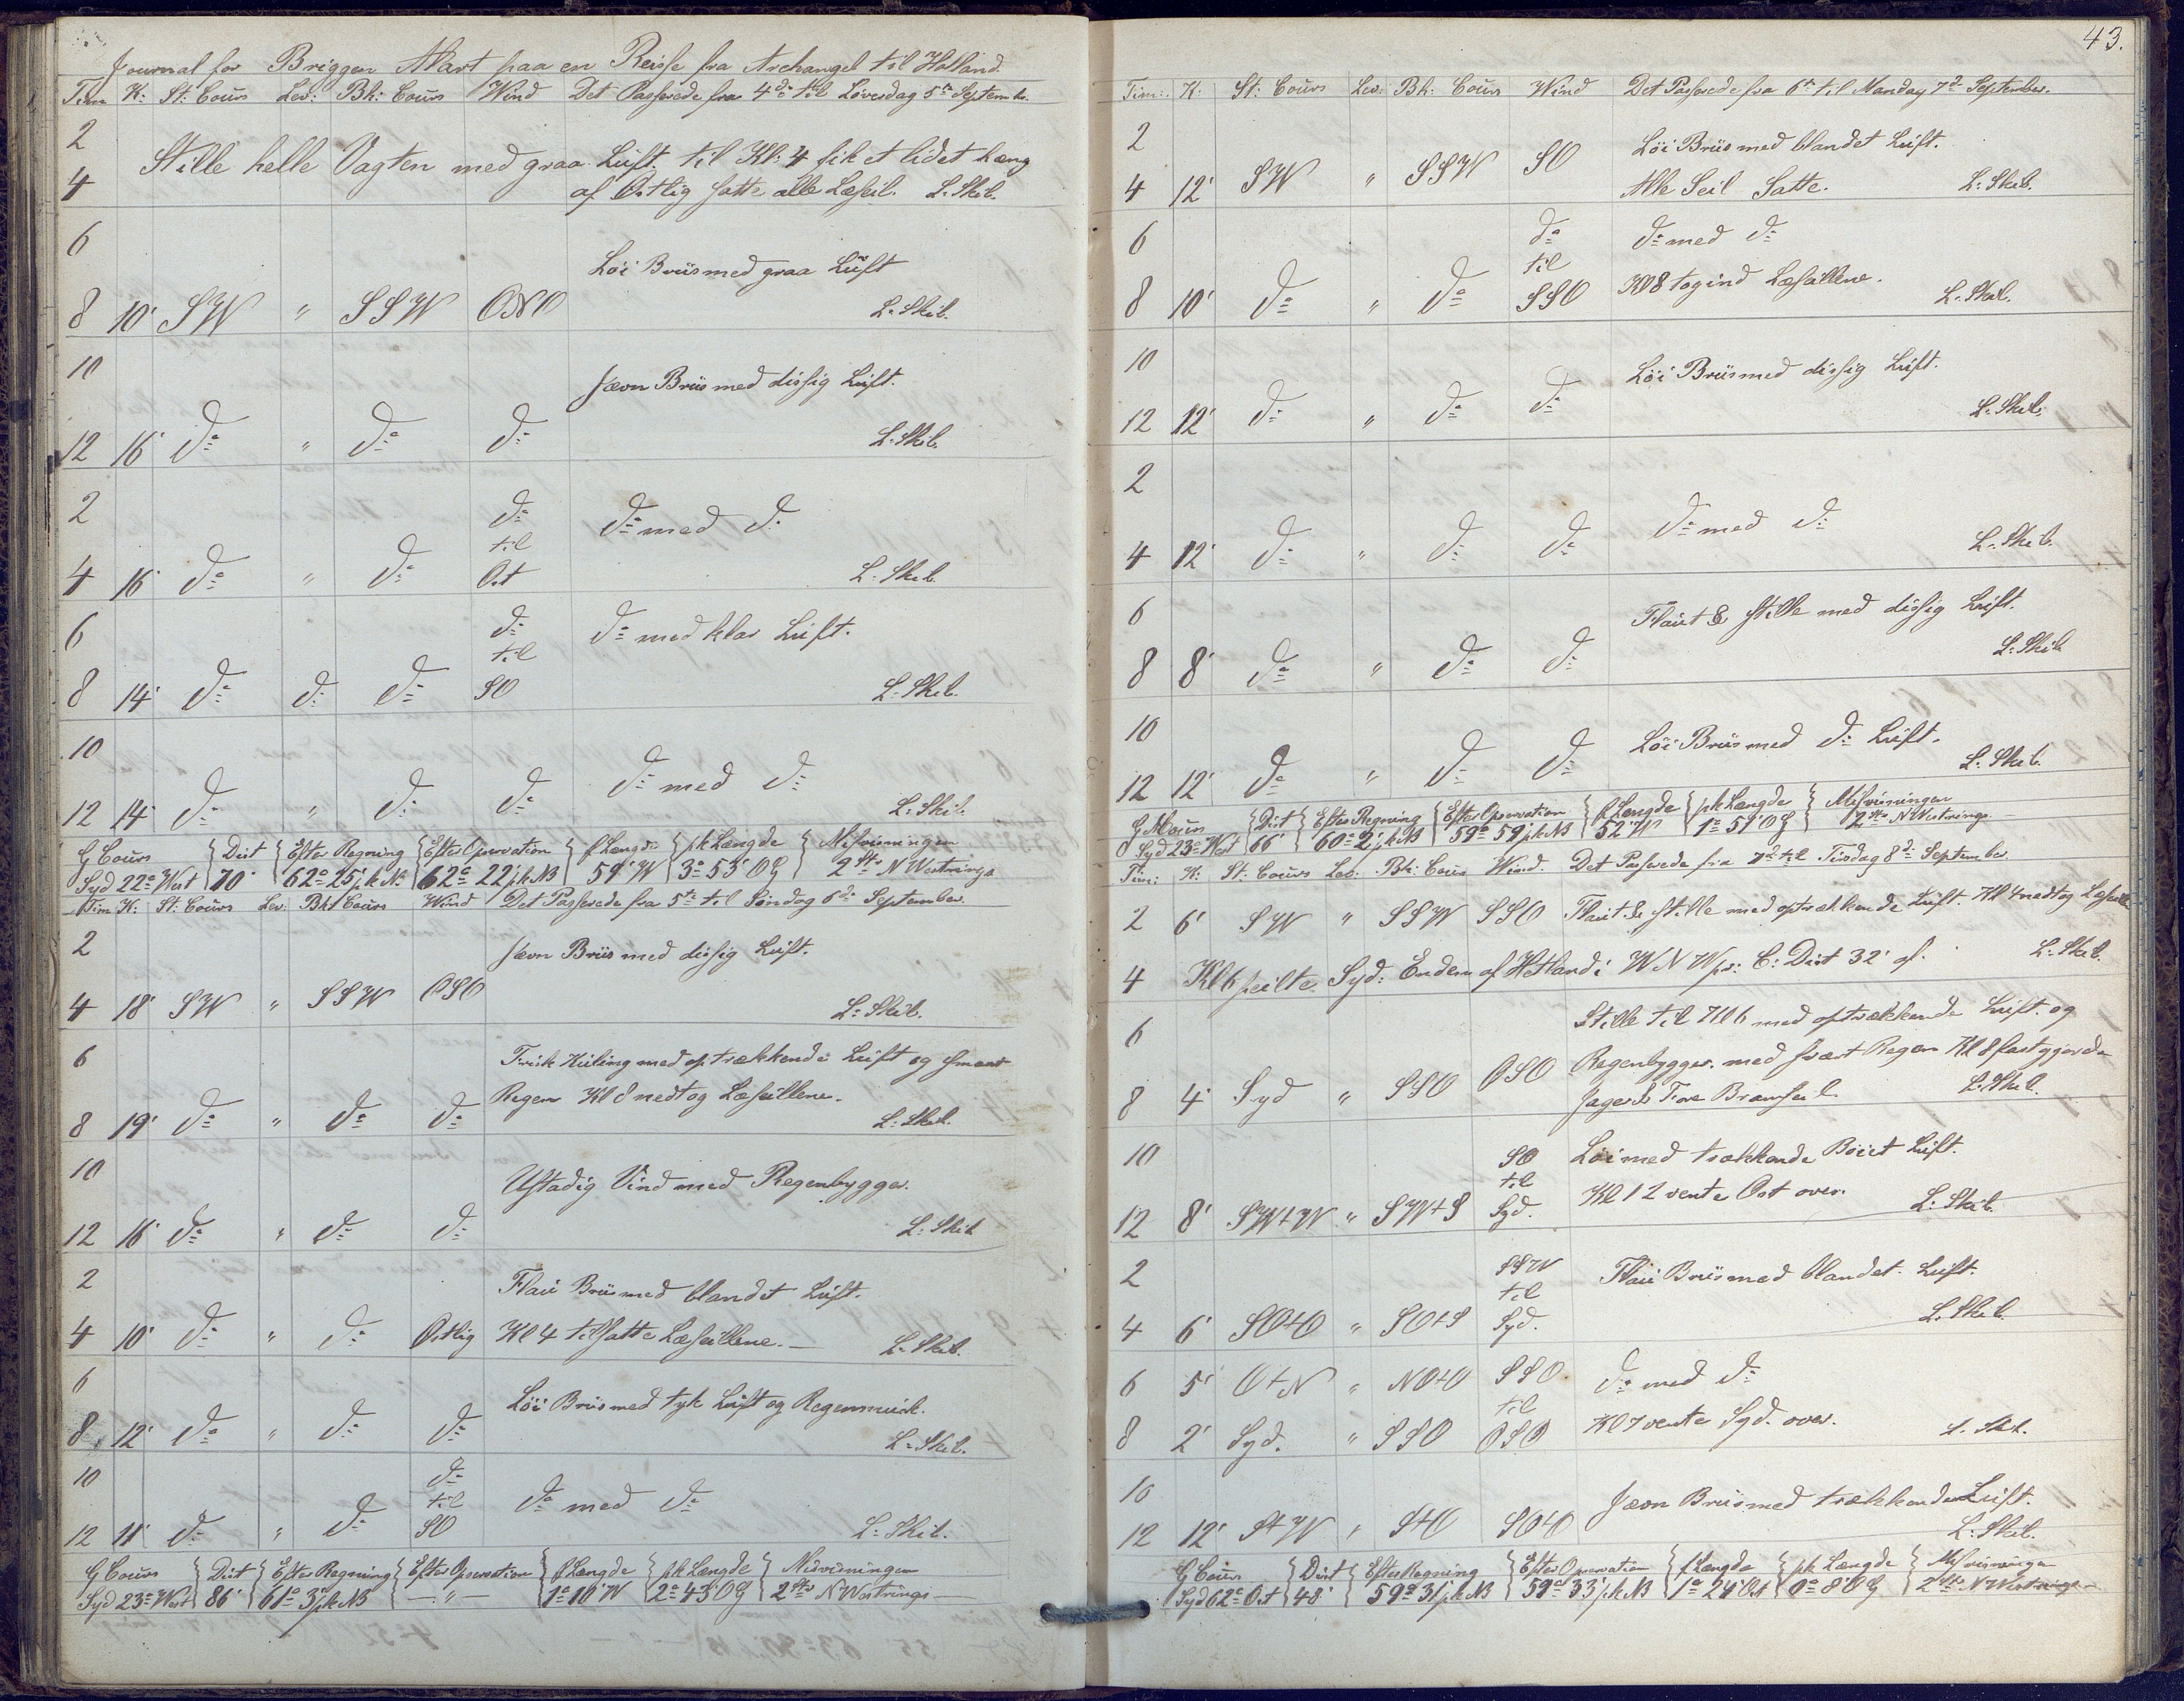 Journal for Briggen Mart paa en Reisse fra Archangel til Holland.
Tim K: St: Cours Lev: Bh: Cours Wind Det Passerede fra 4de til Löverdag 5te Septembr.
2
Stille helle Vagten med graa Luft. til Kl: 4 fik et lidet hæng
4 af Östlig satte alle Læseil. L: Skib.
6
Löi Briis med graa Luft
8 10' SW " SSW ONO L: Skib.
10
Jævn Briis med dissig Luft.
12 16' do " do do L: Skib.
2 do do med do
til
4 16' do " do Ost L: Skib.
6 do do med klar Luft.
til
8 14' do do do SO L: Skib.
10
do med do
12 14' do " do do L: Skib.
G Cours Dist Efter Regning Efter Opservation f Længde pk Længde Misvisningen
Syd 22° West 70' 62° 25' pk NB 62° 22' pk NB 59' W 3° 53' OG 2 Str N Westrings
Tim K: St: Cours Lev: Bht Cours Wind Det Passerede fra 5te til Söndag 6de September.
2
Jævn Briis med dissig Luft.
4 18' SW " SSW OSO L: Skib.
6
Frisk Kuling med optrækkende Luft og smaat
Regen Kl 8 nedtog Læseillene.
8 19' do " do do L: Skib.
10
Ustadig Vind med Regenbygger.
12 16' do " do do L: Skib
2
Flau Briis med blandet Luft.
4 10' do " do Östlig Kl 4 tilsatte Læseillene. — L: Skib.
6
Löi Briis med tyk Luft og Regenmusk.
8 12' do " do do L: Skib.
10 do
til do med do
12 11' do " do SO L: Skib.
G Cours Dist Efter Regning Efter Opservation f Længde pk Længde Misvisningen
Syd 23° West 86' 61° 3' pk NB — " — 1° 10' W 2° 43' OG 2 Str N Westrings —
43.
Tim: K: St: Cours Lev: Bh: Cours Wind Det Passerede fra 6te til Mandag 7de September.
2
Löi Briis med blandet Luft.
4 12' SW " SSW SO Alle Seil Satte. L: Skib.
6 do do med do
til
8 10' do " do SSO Kl 8 tog ind Læseillene. L: Skib.
10
Löi Briis med dissig Luft.
12 12' do " do do L: Skib.
2
do med do
4 12' do " do do L: Skib.
6
Flaut & stille med dissig Luft.
8 8' do " do do L: Skib
10
Löi Briis med do Luft.
12 12' do " do do L: Skib.
G Cours Dist Efter Regning Efter Opservation f Længde pk Længde Misvisningen
Syd 23° West 66' 60° 2' pk NB 59° 59' pk NB 52' W 1° 51' OG 2 Str N Westrings —
Tim: K: St: Cours Lev: Bk: Cours Wind. Det Passerede fra 7de til Tirsdag 8de September.
2 6' SW " SSW SSO Flaut & stille med optrækkende Luft. Kl 4 nedtog Læseille
4 Kl 6 peilte Syd: Enden af Hetland i WNW pr: C: Dist 32' af. L: Skib.
6
Stille til Kl 6 med optrækkende Luft. og
Regenbygger. med svært Regen Kl 8 fastgjorde
8 4' Syd " SSO OSO Jager & Fore Bramseil. L: Skib.
10 SO Löi med trækkende Böiet Luft.
til
12 8' SW+W " SW+S Syd. Kl 12 vente Ost over. L: Skib.
2 SSW Flau Briis med blandet Luft.
til
4 6' SO+O " SO+S Syd. L: Skib.
6 5' O+N " NO+O SSO do med do
til
8 2' Syd. " SSO OSO Kl 7 vente Syd. over. L: Skib.
10
Jævn Briis med trækkende Luft.
12 12' S+W " S+O SO+O L: Skib.
G Cours Dist Efter Regning Efter Opservation f Længde pk Længde Misvisningen
Syd 62° Ost 48' 59° 31' pk NB 59° 33' pk NB 1° 24' Ost 0° 8' OG 2 Str N Westrings —